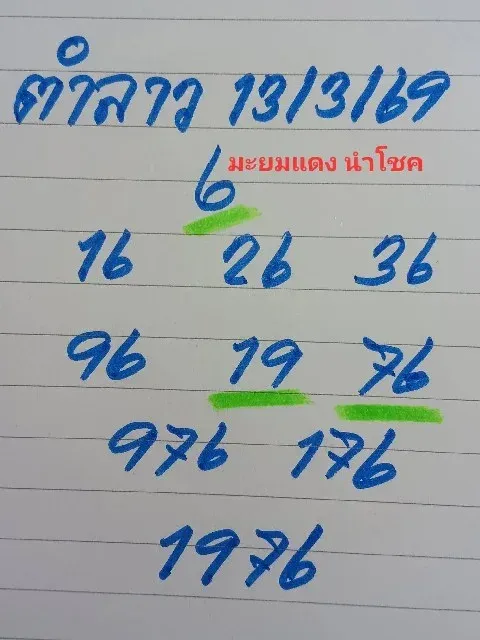 ตำลาว 13/3/69
6
มะยมแดง นำโชค
16 26 36
96 19 76
976 176
1976